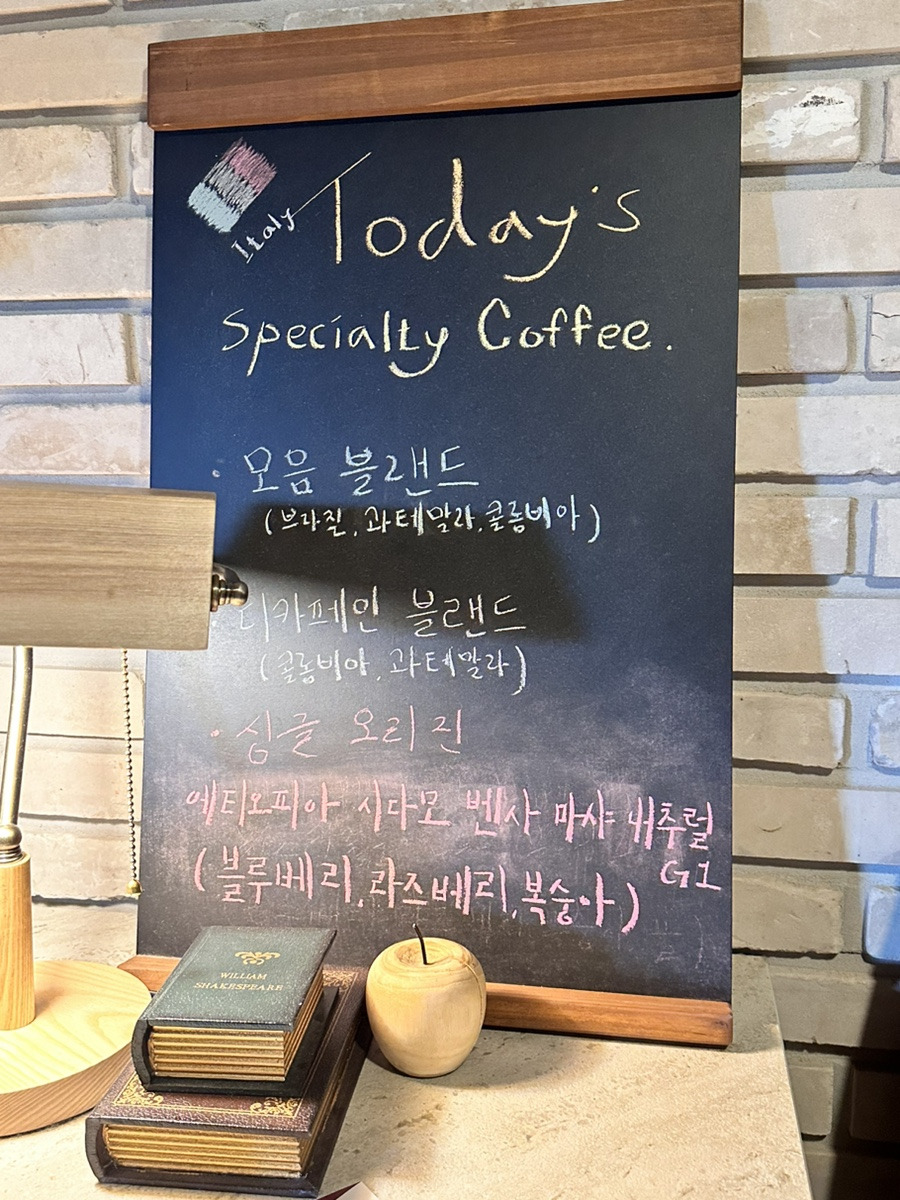 Italy
Today's
Specialty Coffee.
· 모음 블랜드
(브라질, 과테말라, 콜롬비아)
· 디카페인 블랜드
(콜롬비아, 과테말라)
· 싱글 오리진
에티오피아 시다모 벤사 마샤 내추럴
G1
(블루베리, 라즈베리, 복숭아)
WILLIAM
SHAKESPEARE